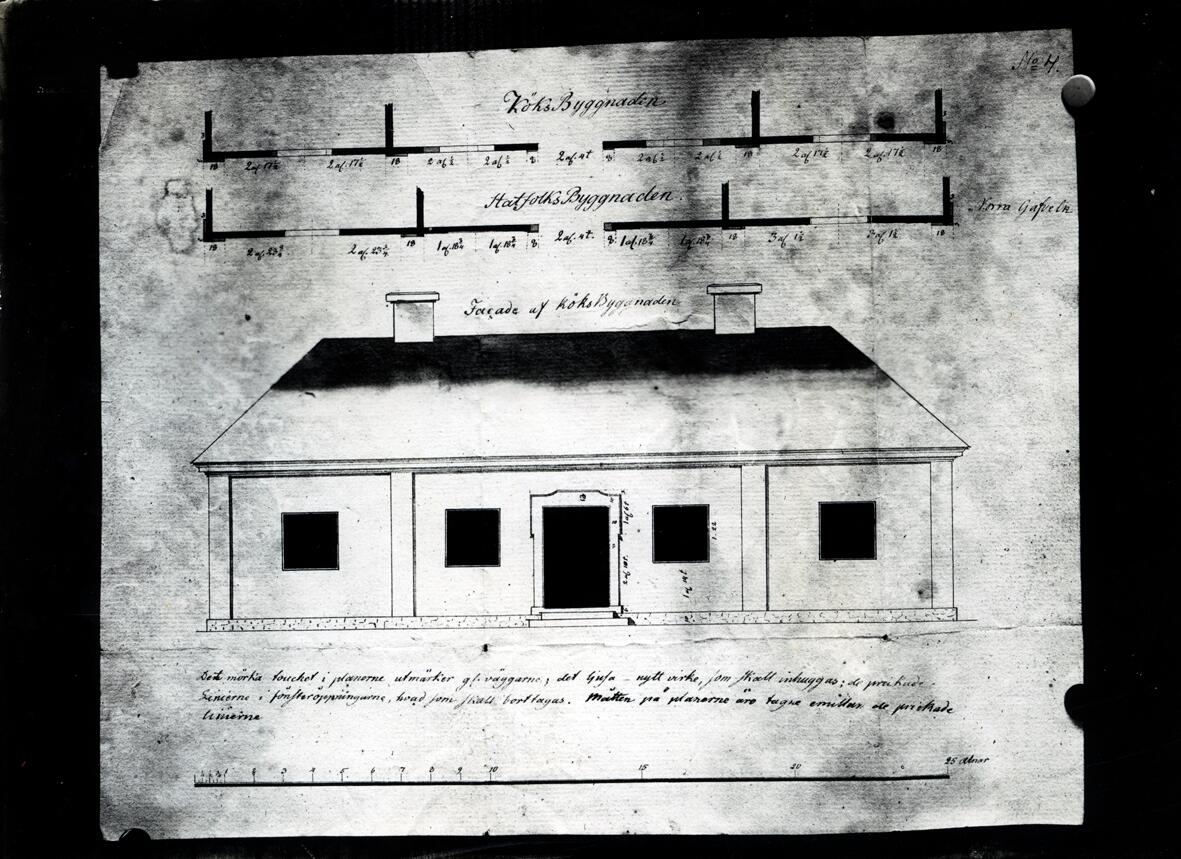 No 4.
Köks Byggnaden
18 2 af. 17½ 2 af. 17½ 18 2 af ½ 2 af ½ 8. 2 af. 4t 8. 2 af ½ 2 af ½ 18 2 af. 17½ 2 af. 17½ 18
Statfolks Byggnaden.
Norra Gafveln
18 2 af. 23¾ 2 af. 23¾ 18 1 af. 18¾ 1 af. 18¾ 8. 2 af. 4t. 8. 1 af. 18¾ 1 af. 18¾ 18 3 af 1½ 3 af 1½ 18
Façade af Köks Byggnaden
2 af 18t.
1 af 14t
1. 22
Det mörka touchet i planerne utmärker gl. väggarne; det ljusa – nytt virke, som skall inhuggas; de prickade
Linierne i fönsteröppningarne, hvad som skall borttagas. Måtten på planerne äro tagne emillan de prickade
linierne
1 2 3 4 5 6 7 8 9 10 15 20 25 alnar